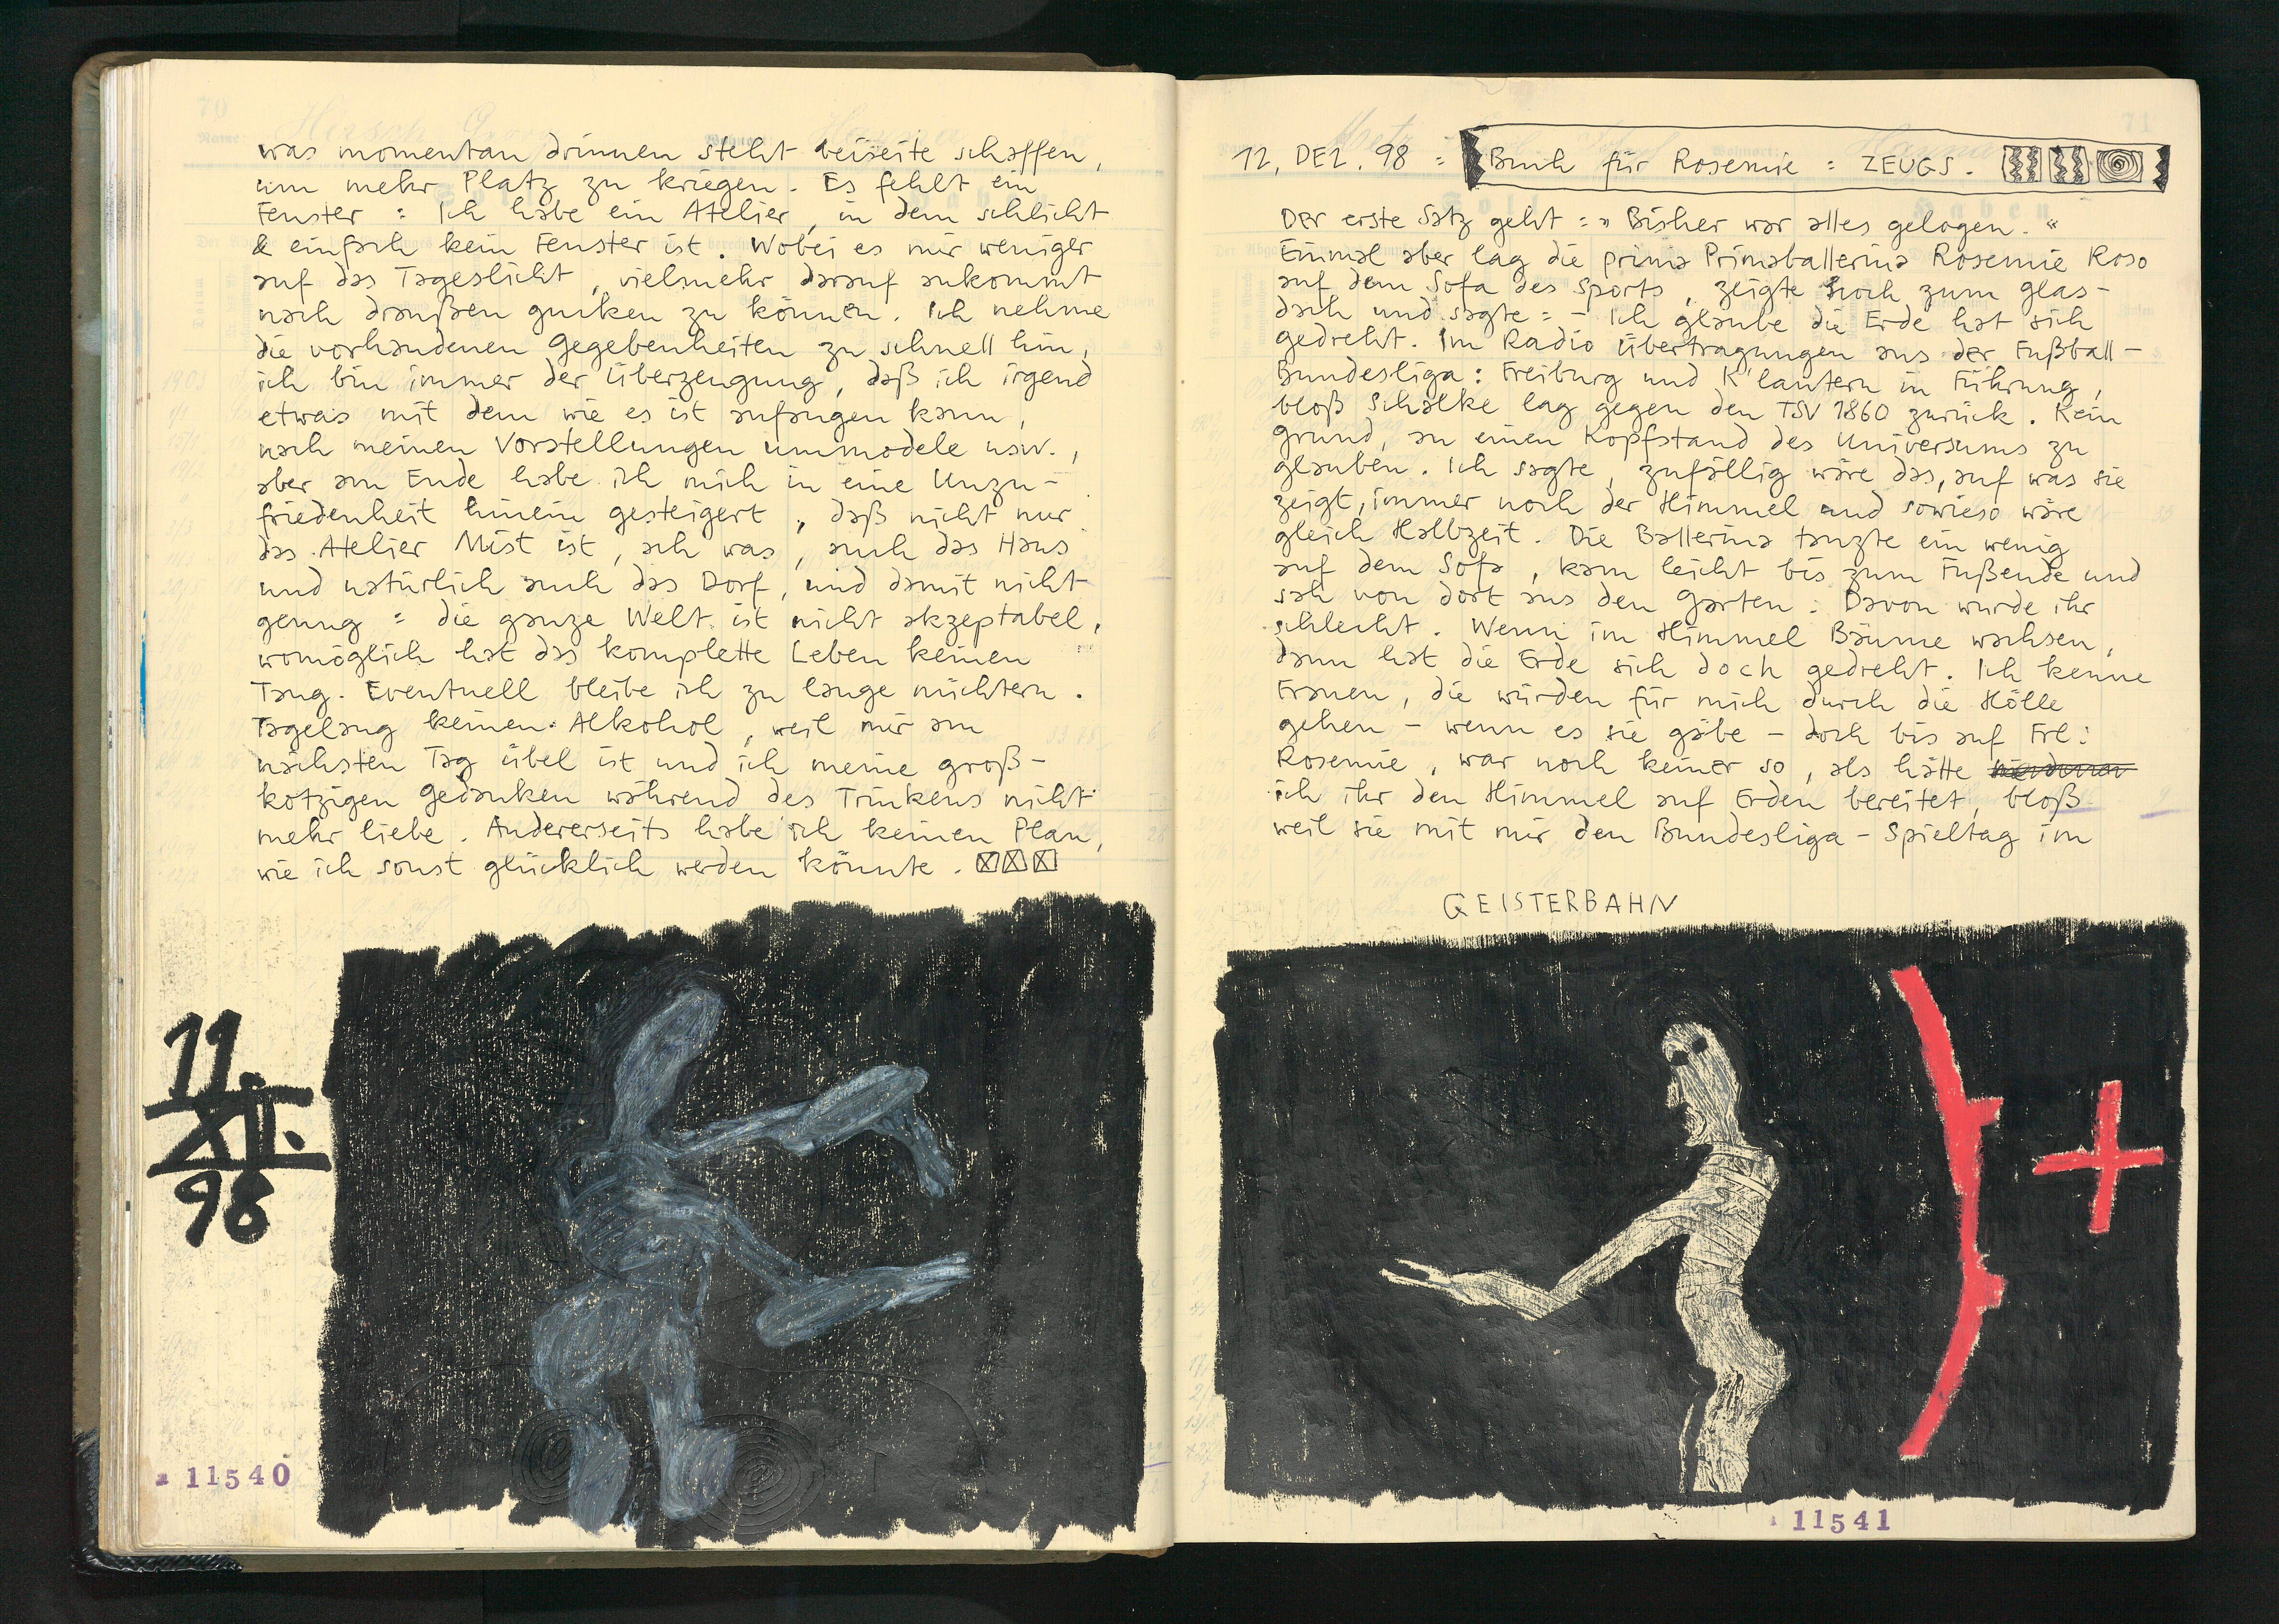 was momentan drinnen steht beiseite schaffen,
um mehr Platz zu kriegen. Es fehlt ein
Fenster : Ich habe ein Atelier, in dem schlicht
& einfach kein Fenster ist. Wobei es mir weniger
auf das Tageslicht, vielmehr darauf ankommt
nach draußen gucken zu können. Ich nehme
die vorhandenen Gegebenheiten zu schnell hin,
ich bin immer der Überzeugung, daß ich irgend
etwas mit dem wie es ist anfangen kann,
nach meinen Vorstellungen ummodele usw.,
aber am Ende habe ich mich in eine Unzu-
friedenheit hinein gesteigert, daß nicht nur
das Atelier Mist ist, ach was, auch das Haus
und natürlich auch das Dorf, und damit nicht
genug : die ganze Welt ist nicht akzeptabel,
womöglich hat das komplette Leben keinen
Taug. Eventuell bleibe ich zu lange nüchtern.
Tagelang keinen Alkohol, weil mir am
nächsten Tag übel ist und ich meine groß-
kotzigen Gedanken während des Trinkens nicht
mehr liebe. Andererseits habe ich keinen Plan,
wie ich sonst glücklich werden könnte.
11.
XII.
98
11540
70
Name: Hirsch Georg
71
12. DEZ. 98 : Buch für Rosemie : ZEUGS.
Der erste Satz geht : » Bisher war alles gelogen. «
Einmal aber lag die prima Primaballerina Rosemie Roso
auf dem Sofa des Sports, zeigte hoch zum Glas-
dach und sagte : - Ich glaube die Erde hat sich
gedreht. Im Radio Übertragungen aus der Fußball-
Bundesliga : Freiburg und K'lautern in Führung,
bloß Schalke lag gegen den TSV 1860 zurück. Kein
Grund, an einen Kopfstand des Universums zu
glauben. Ich sagte, zufällig wäre das, auf was sie
zeigt, immer noch der Himmel und sowieso wäre
gleich Halbzeit. Die Ballerina tanzte ein wenig
auf dem Sofa, kam leicht bis zum Fußende und
sah von dort aus den Garten : Davon wurde ihr
schlecht. Wenn im Himmel Bäume wachsen,
dann hat die Erde sich doch gedreht. Ich kenne
Frauen, die würden für mich durch die Hölle
gehen - wenn es sie gäbe - doch bis auf Frl.
Rosemie, war noch keiner so, als hätte
ich ihr den Himmel auf Erden bereitet, bloß
weil sie mit mir den Bundesliga-Spieltag im
GEISTERBAHN
11541